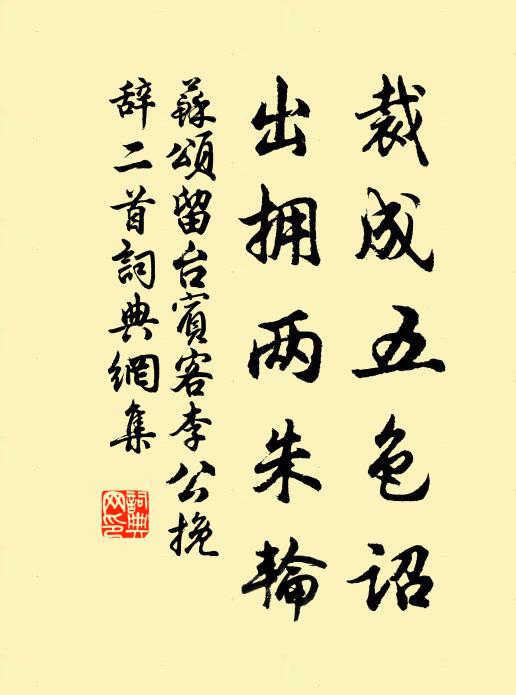 裁成五色诏
出拥两朱輪
蘇頌留台賓客李公挽
辞二首詞典網集
詞典网印